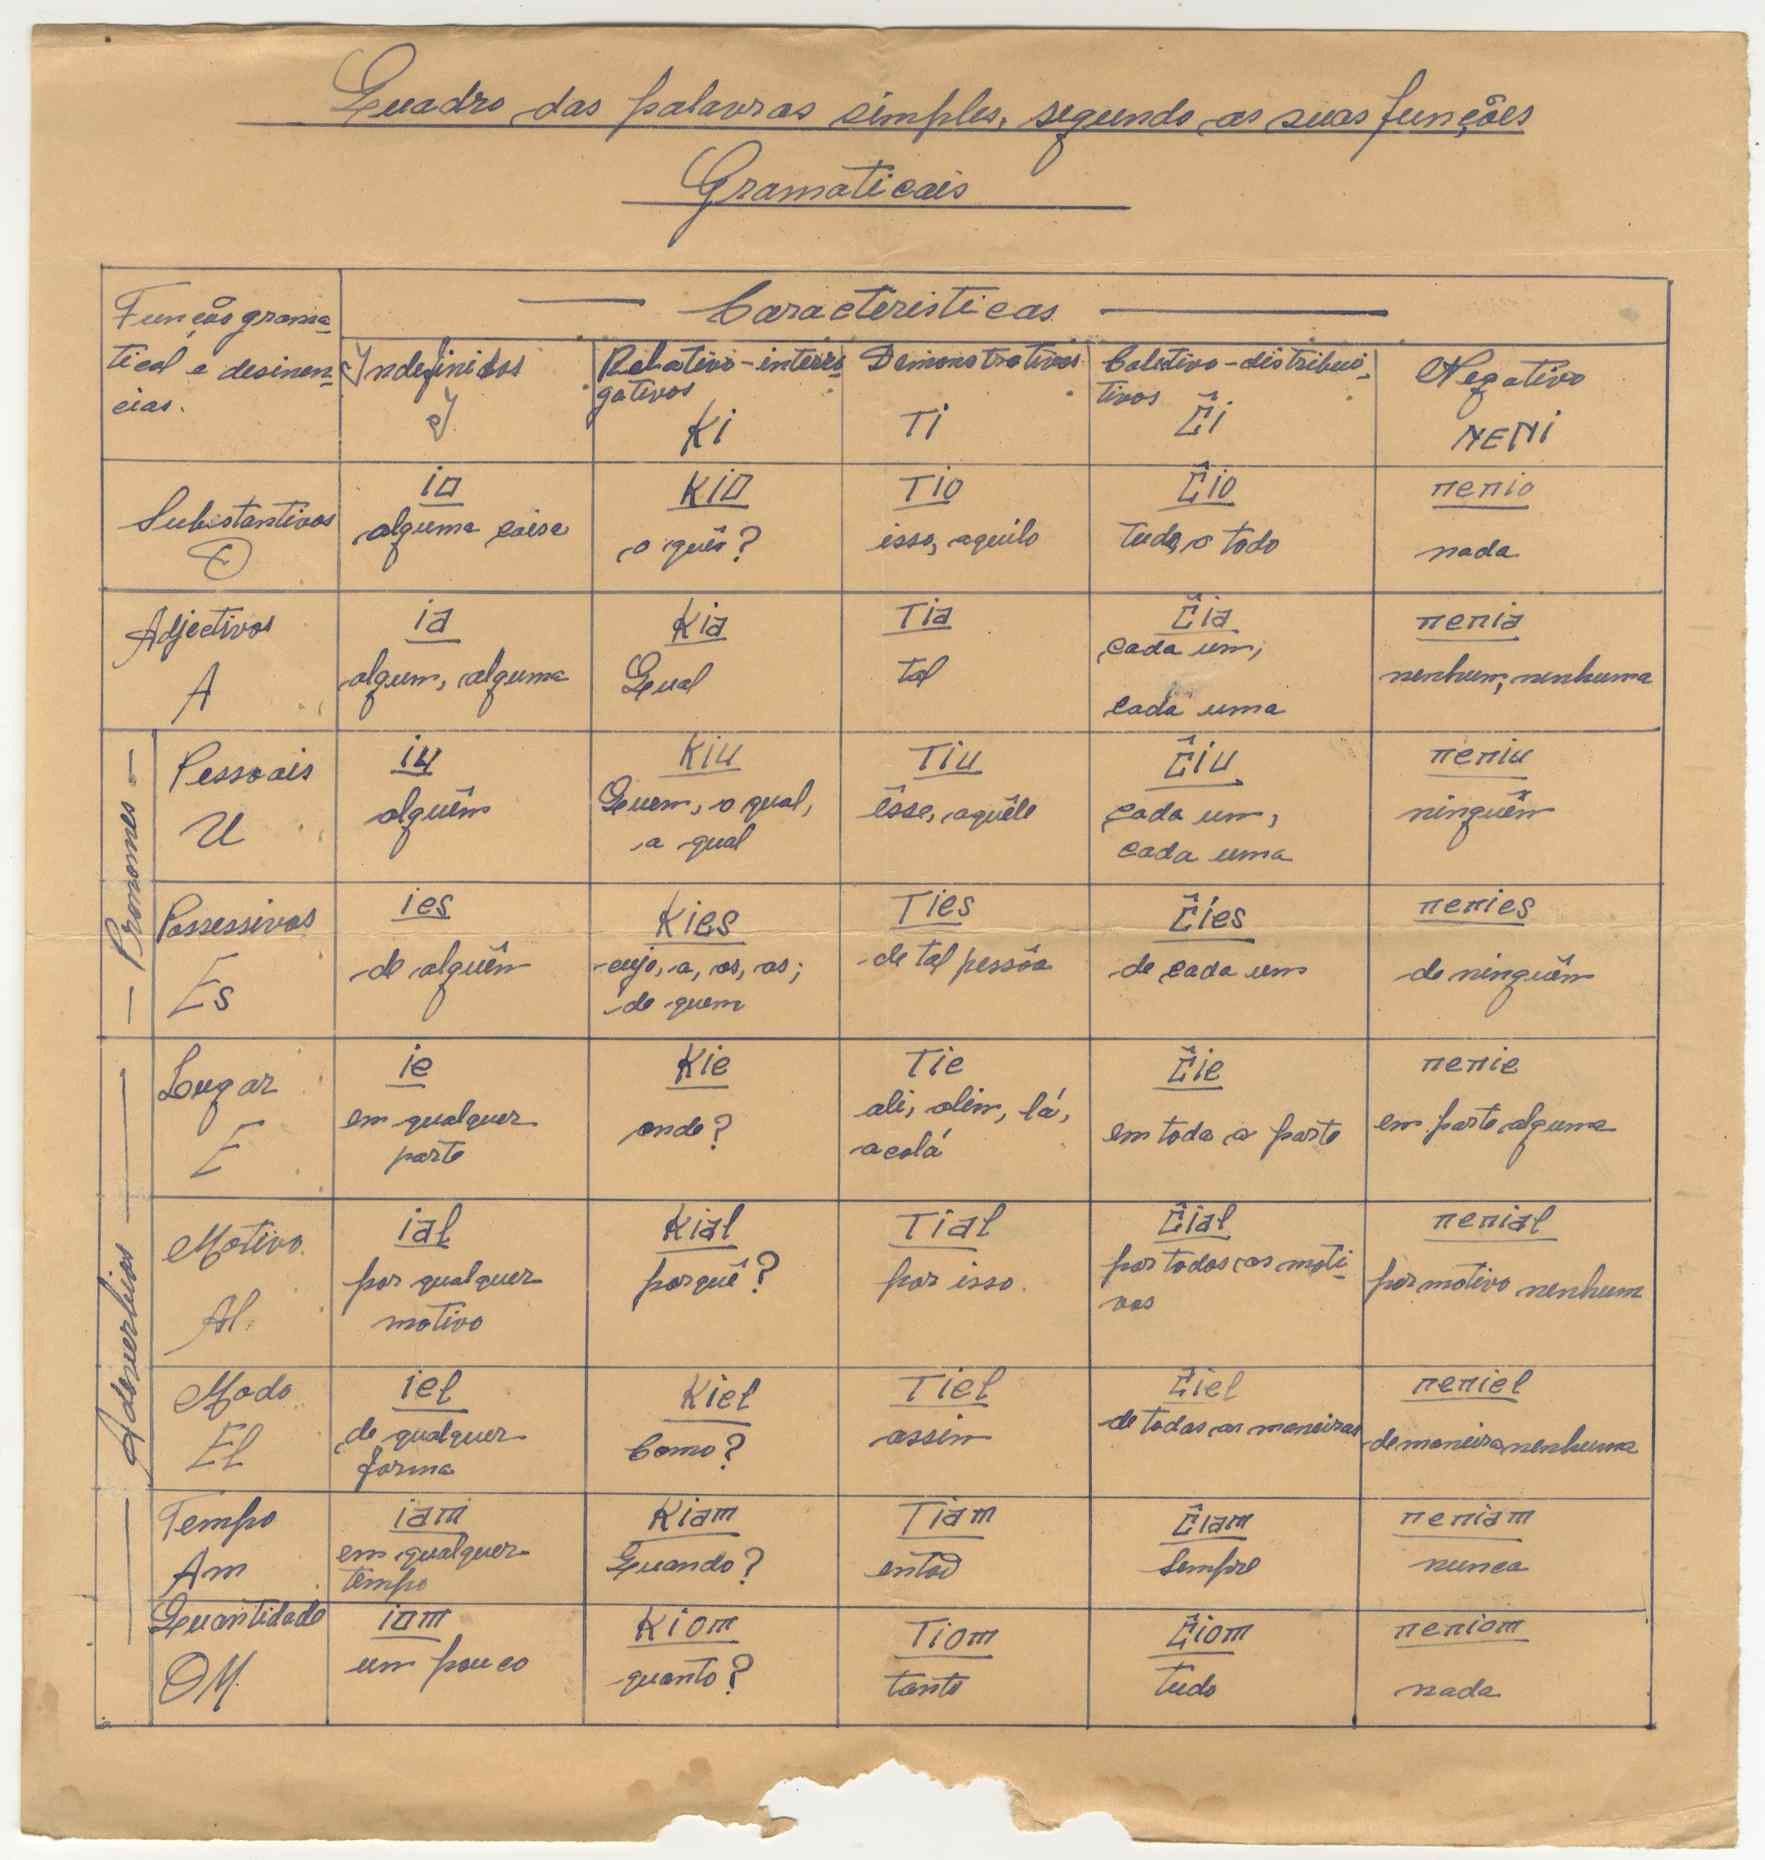 Quadro das palavras simples, segundo as suas funções
Gramaticais
Função grama-
tical e desinen-
cias.
Caracteristicas
Indefinidos
I
Relativo-interro-
gativos
Ki
Demonstrativos
Ti
Coletivo-distribui-
tivos
Ĉi
Negativo
NENi
Substantivos
O
io
alguma coisa
Kio
o quê?
Tio
isso, aquilo
Ĉio
tudo, o todo
nenio
nada
Adjectivos
A
ia
algum, alguma
Kia
Qual
Tia
tal
Ĉia
cada um,
cada uma
nenia
nenhum, nenhuma
Pronomes
Pessoais
U
iu
alguêm
Kiu
Quem, o qual,
a qual
Tiu
êsse, aquêle
Ĉiu
cada um,
cada uma
neniu
ninguêm
Possessivos
Es
ies
de alguêm
Kies
cujo, a, os, as;
de quem
Ties
de tal pessôa
Ĉies
de cada um
nenies
de ninguêm
Adverbios
Lugar
E
ie
em qualquer
parte
Kie
onde?
Tie
ali, alim, lá,
acolá
Ĉie
em toda a parte
nenie
em parte alguma
Motivo
Al
ial
por qualquer
motivo
Kial
porquê?
Tial
por isso.
Ĉial
por todos os moti-
vos
nenial
por motivo nenhum
Modo
El
iel
de qualquer
forma
Kiel
Como?
Tiel
assim
Ĉiel
de todas as maneiras
neniel
de maneira nenhuma
Tempo
Am
iam
em qualquer
tempo
Kiam
Quando?
Tiam
então
Ĉiam
Sempre
neniam
nunca
Quantidade
OM.
iom
um pouco
Kiom
quanto?
Tiom
tanto
Ĉiom
tudo
neniom
nada